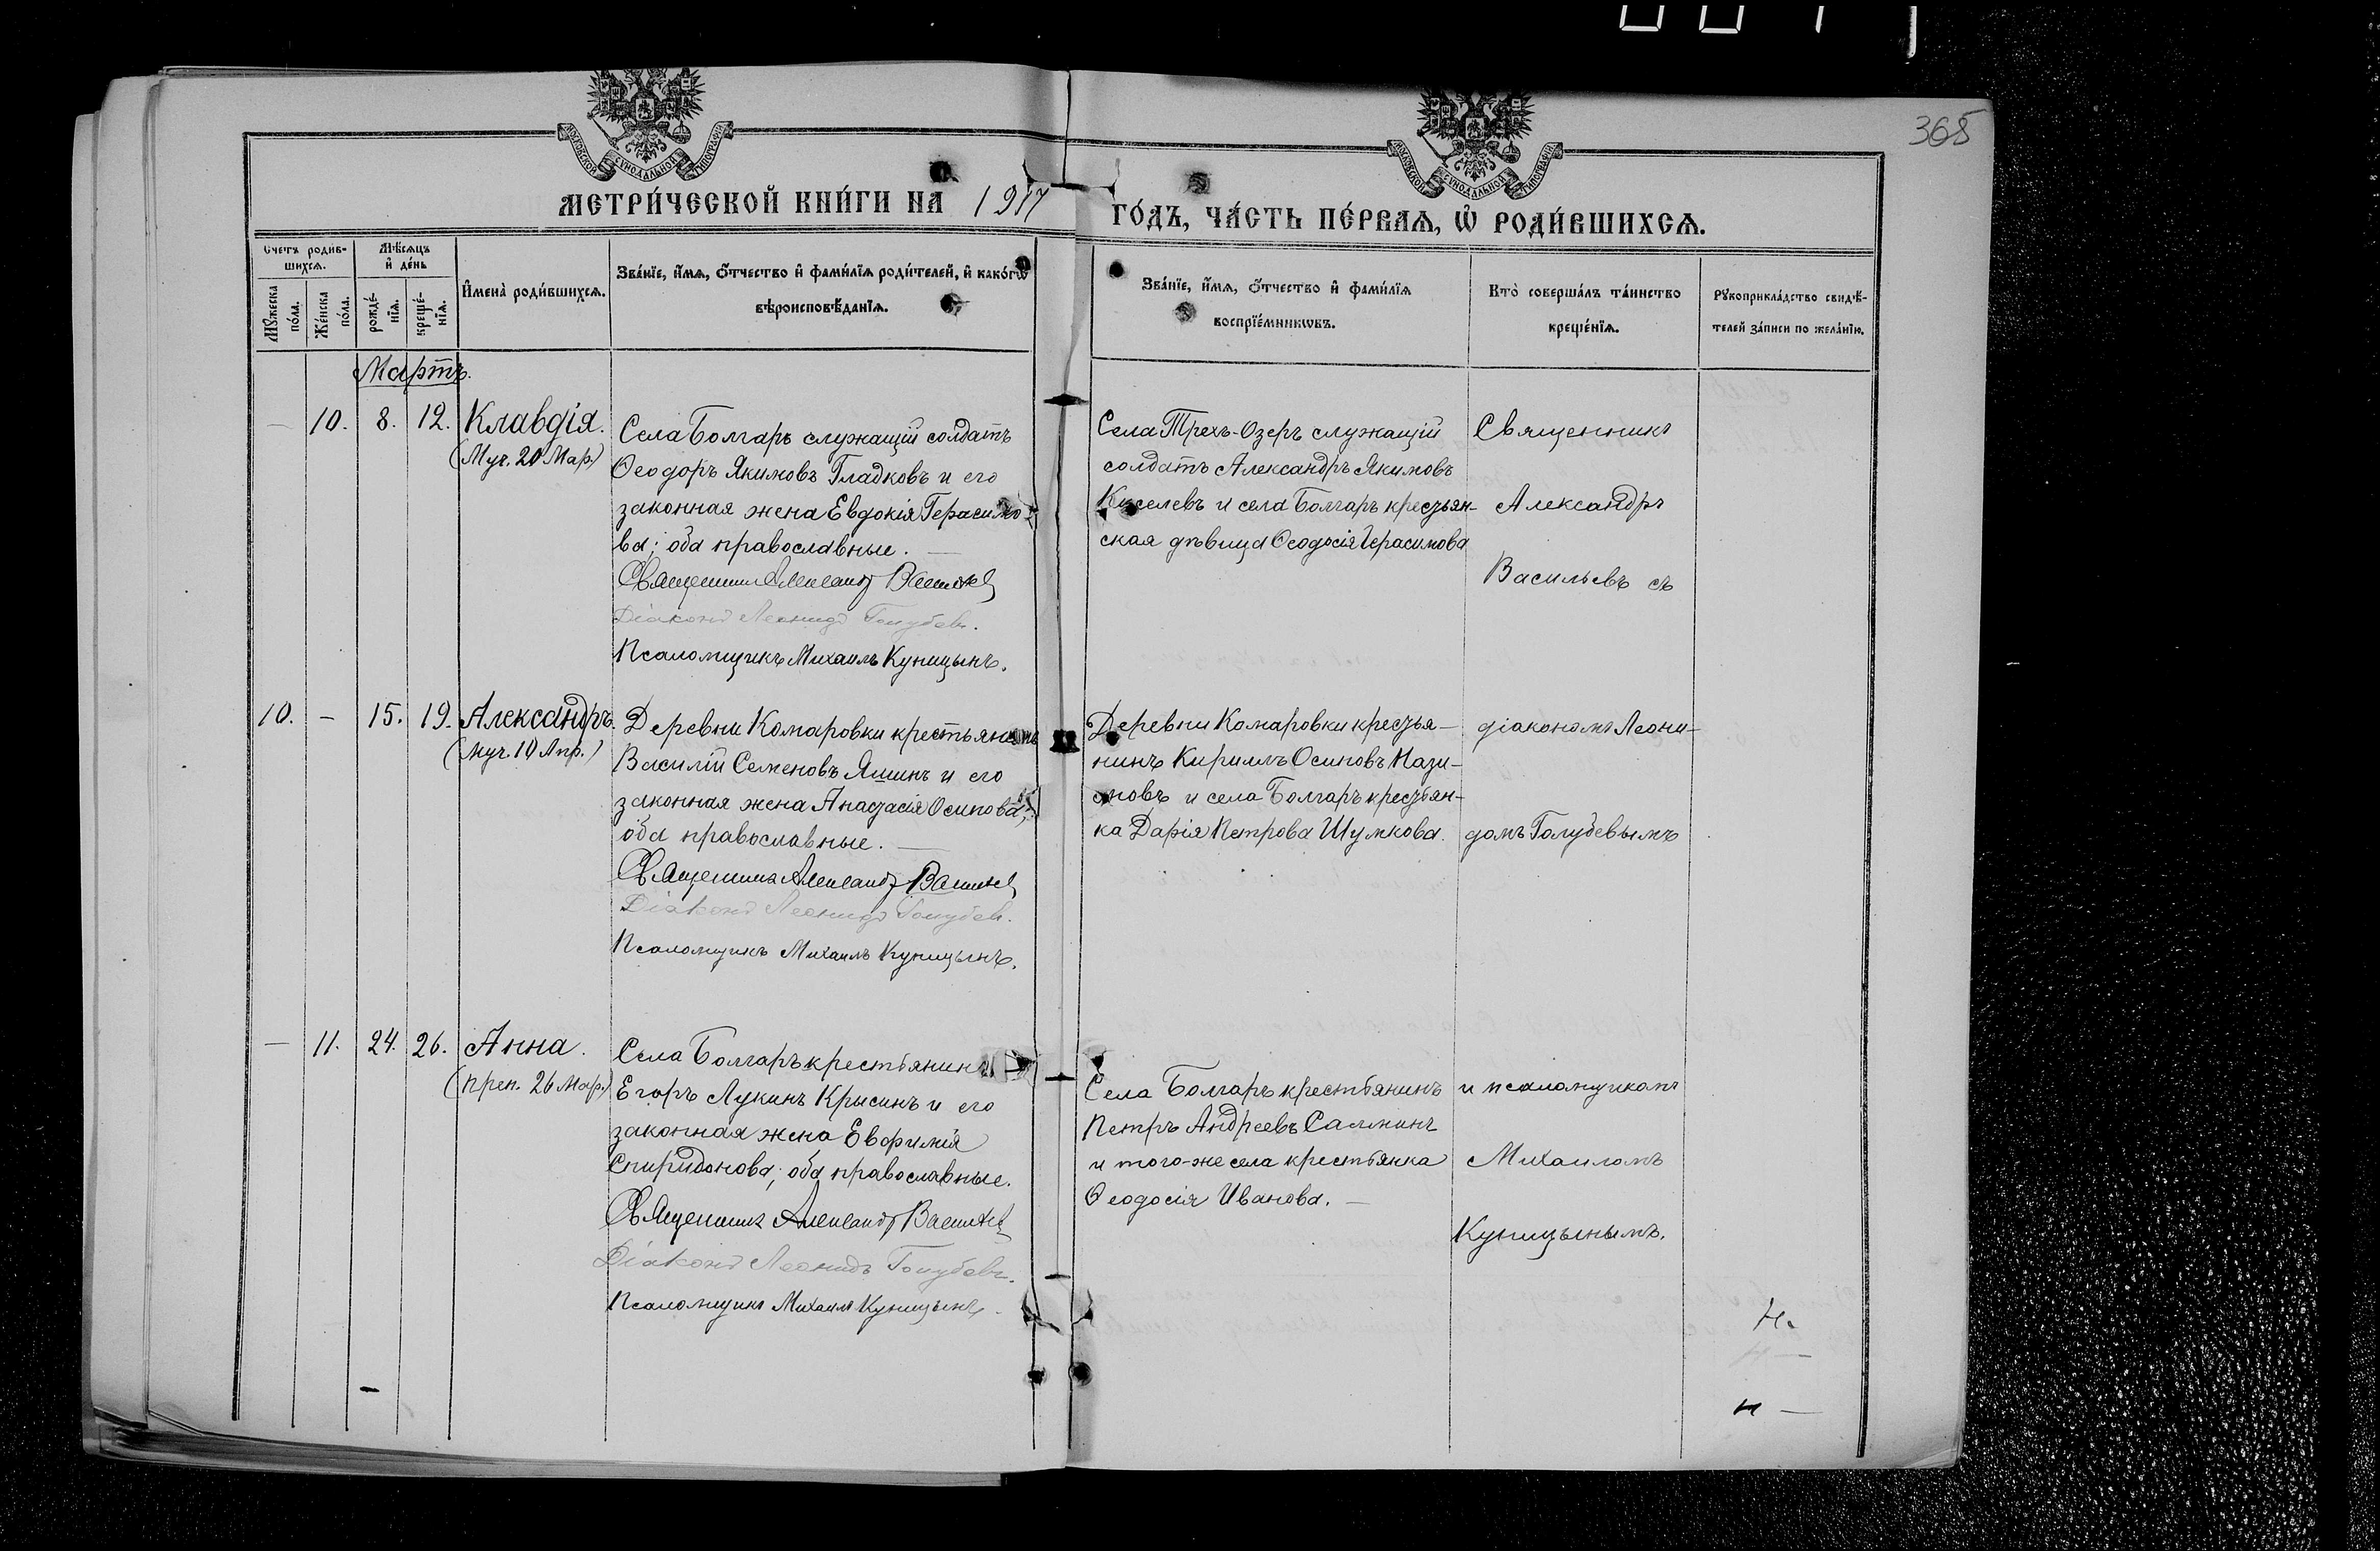 365
МОСКОВСКОЙ СѴНОДАЛЬНОЙ ТИПОГРАФІИ
МОСКОВСКОЙ СѴНОДАЛЬНОЙ ТИПОГРАФІИ
МЕТРИ́ЧЕСКОЙ КНИ́ГИ НА 1917
ГО́ДЪ, ЧА́СТЬ ПЕ́РВАЯ, Ѡ РОДИ́ВШИХСЯ.
Счетъ родив-
шихся.
Мѣ́сяцъ
и҆ де́нь
Мꙋ́жеска
по́ла.
Же́нска
по́ла.
рожде́-
нїя.
креще́-
нїя.
И҆мена̀ роди́вшихся.
Зва́нїе, и҆́мя, ѻ҆́тчество и҆ фами́лїя роди́телей, и҆ како́гѡ
вѣроисповѣ́данїя.
Зва́нїе, и҆́мя, ѻ҆́тчество и҆ фами́лїя
воспрїе́мникѡвъ.
Кто̀ соверша́лъ та́инство
креще́нїя.
Рꙋкоприкла́дство свидѣ́-
телей за́писи по жела́нїю.
Мартъ.
— 10. 8. 12. Клавдія.
(Муч. 20 Мар.)
Села Болгаръ служащій солдатъ
Ѳеодоръ Якимовъ Гладковъ и его
законная жена Евдокія Герасимо-
ва; оба православные. —
Священникъ Александръ Васильевъ
Діаконъ Леонидъ Голубевъ.
Псаломщикъ Михаилъ Куницынъ.
Села Трехъ-Озеръ служащій
солдатъ Александръ Якимовъ
Киселевъ и села Болгаръ крестьян-
ская дѣвица Ѳеодосія Герасимова
Священникъ
Александръ
Васильевъ съ
10. — 15. 19. Александръ.
(муч. 10 Апр.)
Деревни Комаровки крестьянинъ
Василій Семеновъ Яшинъ и его
законная жена Анастасія Осипова;
оба православные. —
Священникъ Александръ Васильевъ
Діаконъ Леонидъ Голубевъ.
Псаломщикъ Михаилъ Куницынъ.
Деревни Комаровки крестья-
нинъ Кириллъ Осиповъ Нази-
мовъ и села Болгаръ крестьян-
ка Дарія Петрова Шумкова.
діакономъ Леони-
домъ Голубевымъ
— 11. 24. 26. Анна.
(преп. 26 Мар.)
Села Болгаръ крестьянинъ
Егоръ Лукинъ Крысинъ и его
законная жена Евфимія
Спиридонова; оба православные.
Священникъ Александръ Васильевъ
Діаконъ Леонидъ Голубевъ.
Псаломщикъ Михаилъ Куницынъ.
Села Болгаръ крестьянинъ
Петръ Андреевъ Салминъ
и того-же села крестьянка
Ѳеодосія Иванова. —
и псаломщикомъ
Михаиломъ
Куницынымъ.
Н.
н —